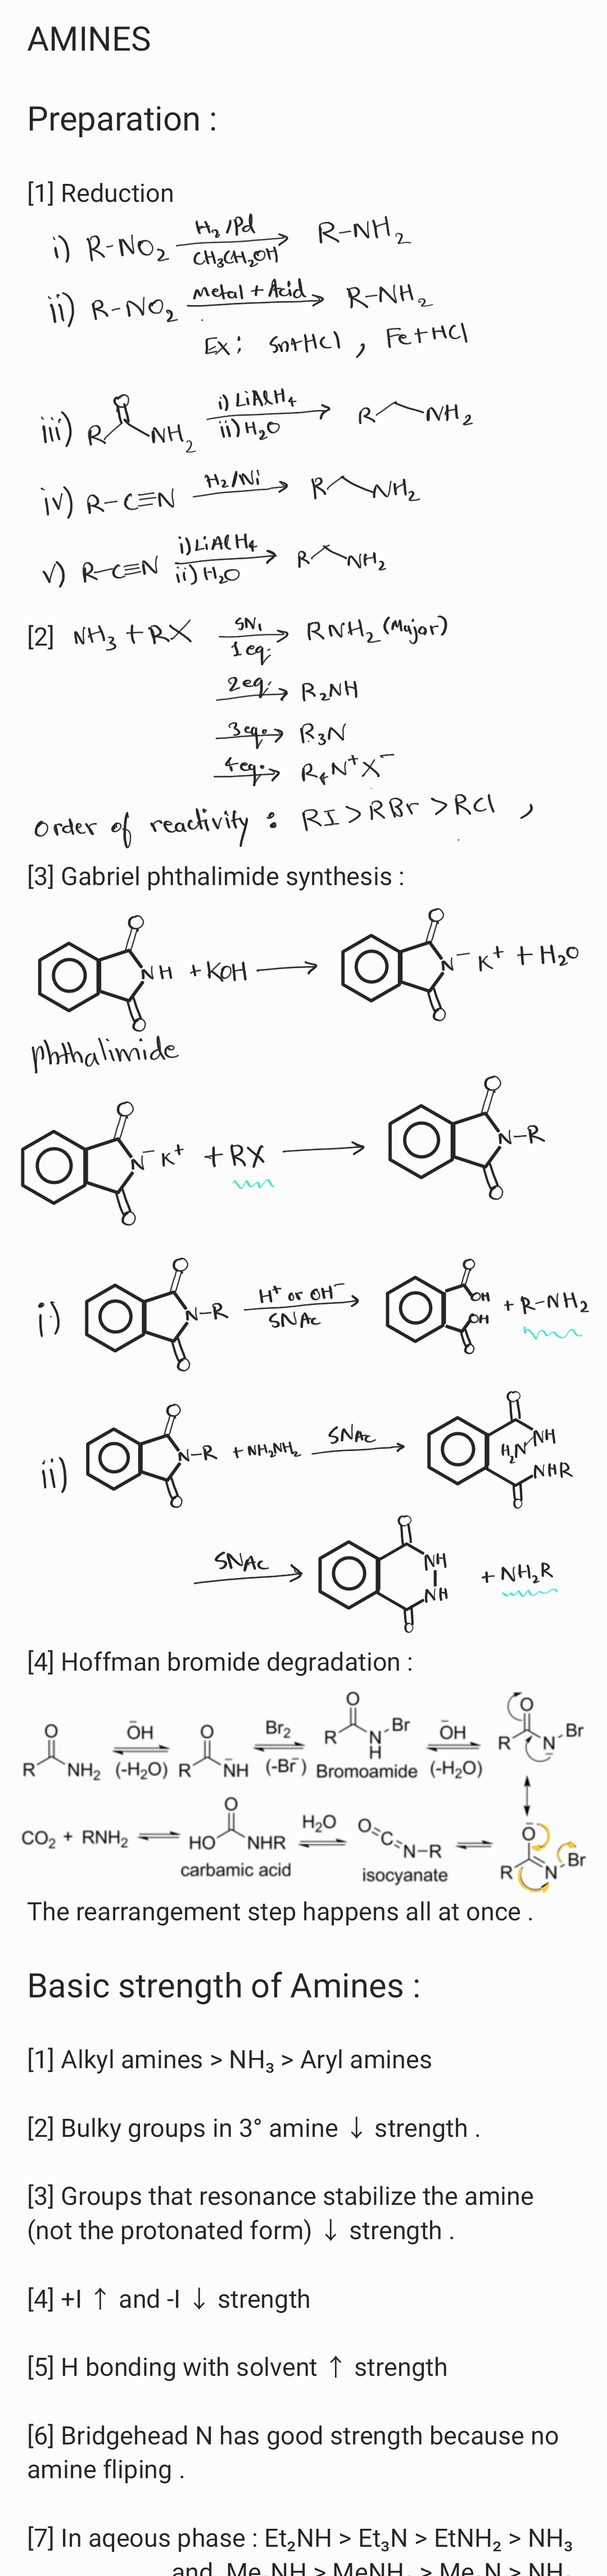 AMINES
Preparation :
[1] Reduction
i) R-NO₂ H₂/Pd CH₃CH₂OH R-NH₂
ii) R-NO₂ Metal + Acid R-NH₂
Ex: Sn+HCl , Fe+HCl
iii) R O NH₂ i) LiAlH₄ ii) H₂O R NH₂
iv) R-C≡N H₂/Ni R NH₂
v) R-C≡N i) LiAlH₄ ii) H₂O R NH₂
[2] NH₃ + RX SN₁ 1eq. RNH₂ (Major)
2eq. R₂NH
3eq. R₃N
4eq. R₄N⁺X⁻
Order of reactivity : RI > RBr > RCl ,
[3] Gabriel phthalimide synthesis :
O NH O + KOH O N⁻ K⁺ O + H₂O
phthalimide
O N⁻ K⁺ O + RX O N-R O
i) O N-R O H⁺ or OH⁻ SNAc O OH OH O + R-NH₂
ii) O N-R O + NH₂NH₂ SNAc O NH H₂N NHR O
SNAc O NH NH O + NH₂R
[4] Hoffman bromide degradation :
R O NH₂ ŌH (-H₂O) R O N̄H Br₂ (-Br̄) R O N H Br Bromoamide ŌH (-H₂O) R O N Br
CO₂ + RNH₂ HO O NHR carbamic acid H₂O O=C=N-R isocyanate R Ō N Br
The rearrangement step happens all at once .
Basic strength of Amines :
[1] Alkyl amines > NH₃ > Aryl amines
[2] Bulky groups in 3° amine ↓ strength .
[3] Groups that resonance stabilize the amine
(not the protonated form) ↓ strength .
[4] +I ↑ and -I ↓ strength
[5] H bonding with solvent ↑ strength
[6] Bridgehead N has good strength because no
amine fliping .
[7] In aqeous phase : Et₂NH > Et₃N > EtNH₂ > NH₃
and Me₂NH > MeNH₂ > Me₃N > NH₃